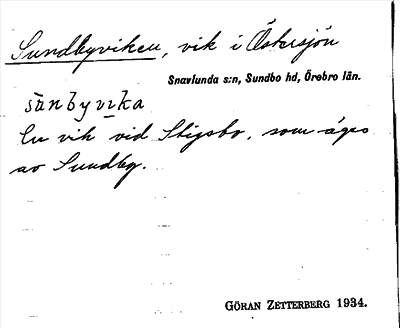 Sundbyviken, vik i Östersjön
Snavlunda s:n, Sundbo hd, Örebro län.
sànbyvika
En vik vid Stigsbo, som äges
av Sundby.
GÖRAN ZETTERBERG 1934.